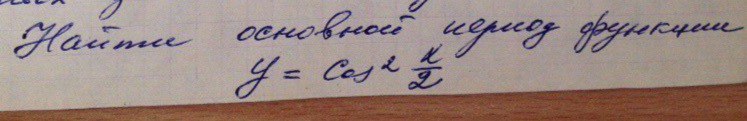 Найти основной период функции
y = cos² x/2